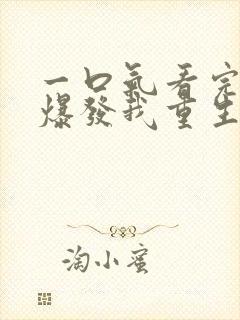 一口氣看完
爆發我重生
淘小蜜